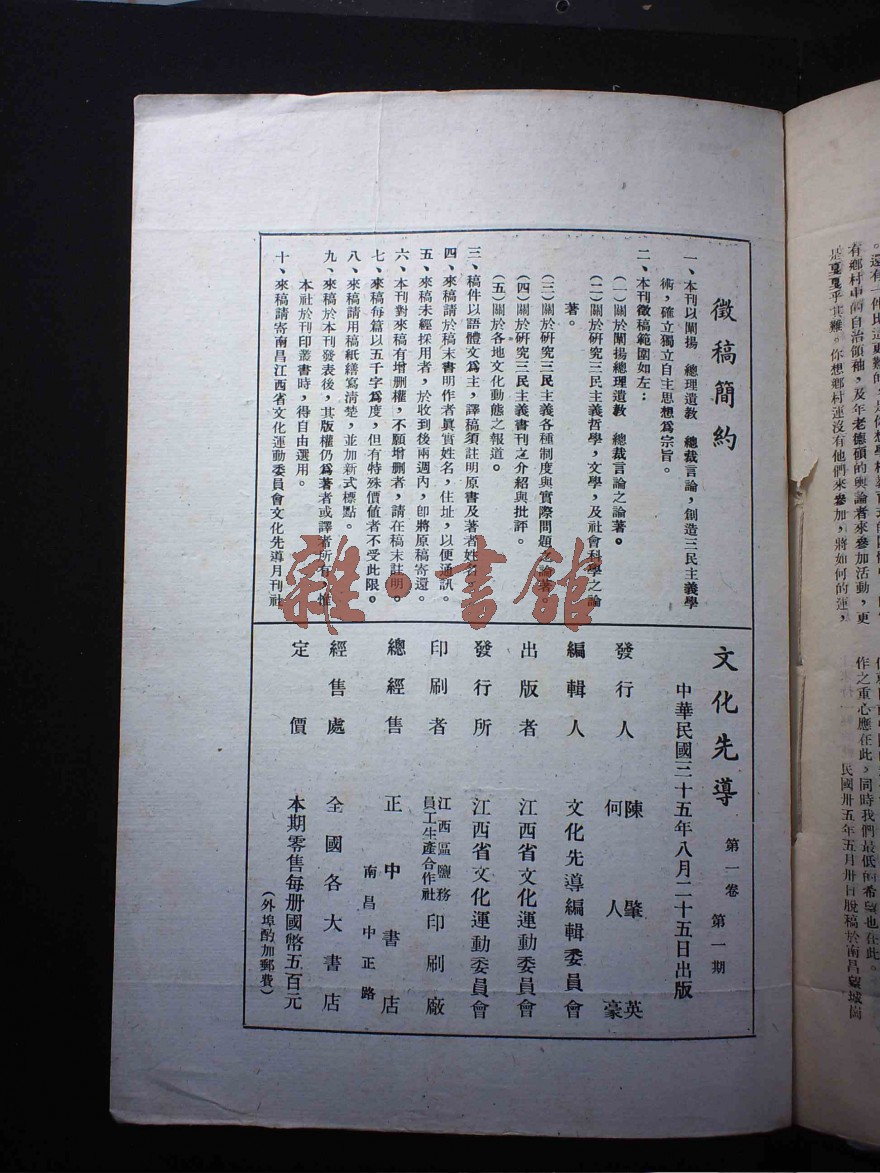 徵稿簡約
一、本刊以闡揚　總理遺教　總裁言論，創造三民主義學
術，確立獨立自主思想爲宗旨。
二、本刊徵稿範圍如左：
（一）關於闡揚總理遺教　總裁言論之論著。
（二）關於研究三民主義哲學，文學，及社會科學之論
著。
（三）關於研究三民主義各種制度與實際問題之論著。
（四）關於研究三民主義書刊之介紹與批評。
（五）關於各地文化動態之報道。
三、稿件以語體文爲主，譯稿須註明原書及著者姓名。
四、來稿請於稿末書明作者眞實姓名，住址，以便通訊。
五、來稿未經採用者，於收到後兩週內，卽將原稿寄還。
六、本刊對來稿有增刪權，不願增刪者，請在稿末註明。
七、來稿每篇以五千字爲度，但有特殊價値者不受此限。
八、來稿請用稿紙繕寫清楚，並加新式標點。
九、來稿於本刊發表後，其版權仍爲著者或譯者所有，惟
本社於刊印叢書時，得自由選用。
十、來稿請寄南昌江西省文化運動委員會文化先導月刊社
文化先導　第一卷　第一期
中華民國三十五年八月二十五日出版
發行人　陳肇英
何人豪
編輯人　文化先導編輯委員會
出版者　江西省文化運動委員會
發行所　江西省文化運動委員會
印刷者　江西區鹽務員工生產合作社印刷廠
總經售　正中書店
南昌中正路
經售處　全國各大書店
定價　本期零售每册國幣五百元
（外埠酌加郵費）
雜·書館
有鄉村中的自治領袖，及年老德碩的輿論者來參加活動，更
是戞戞乎其難。你想鄉村運沒有他們來參加，將如何的運，
作之重心應在此，同時我們最低的希望也在此。
民國卅五年五月卅日脫稿於南昌望城崗